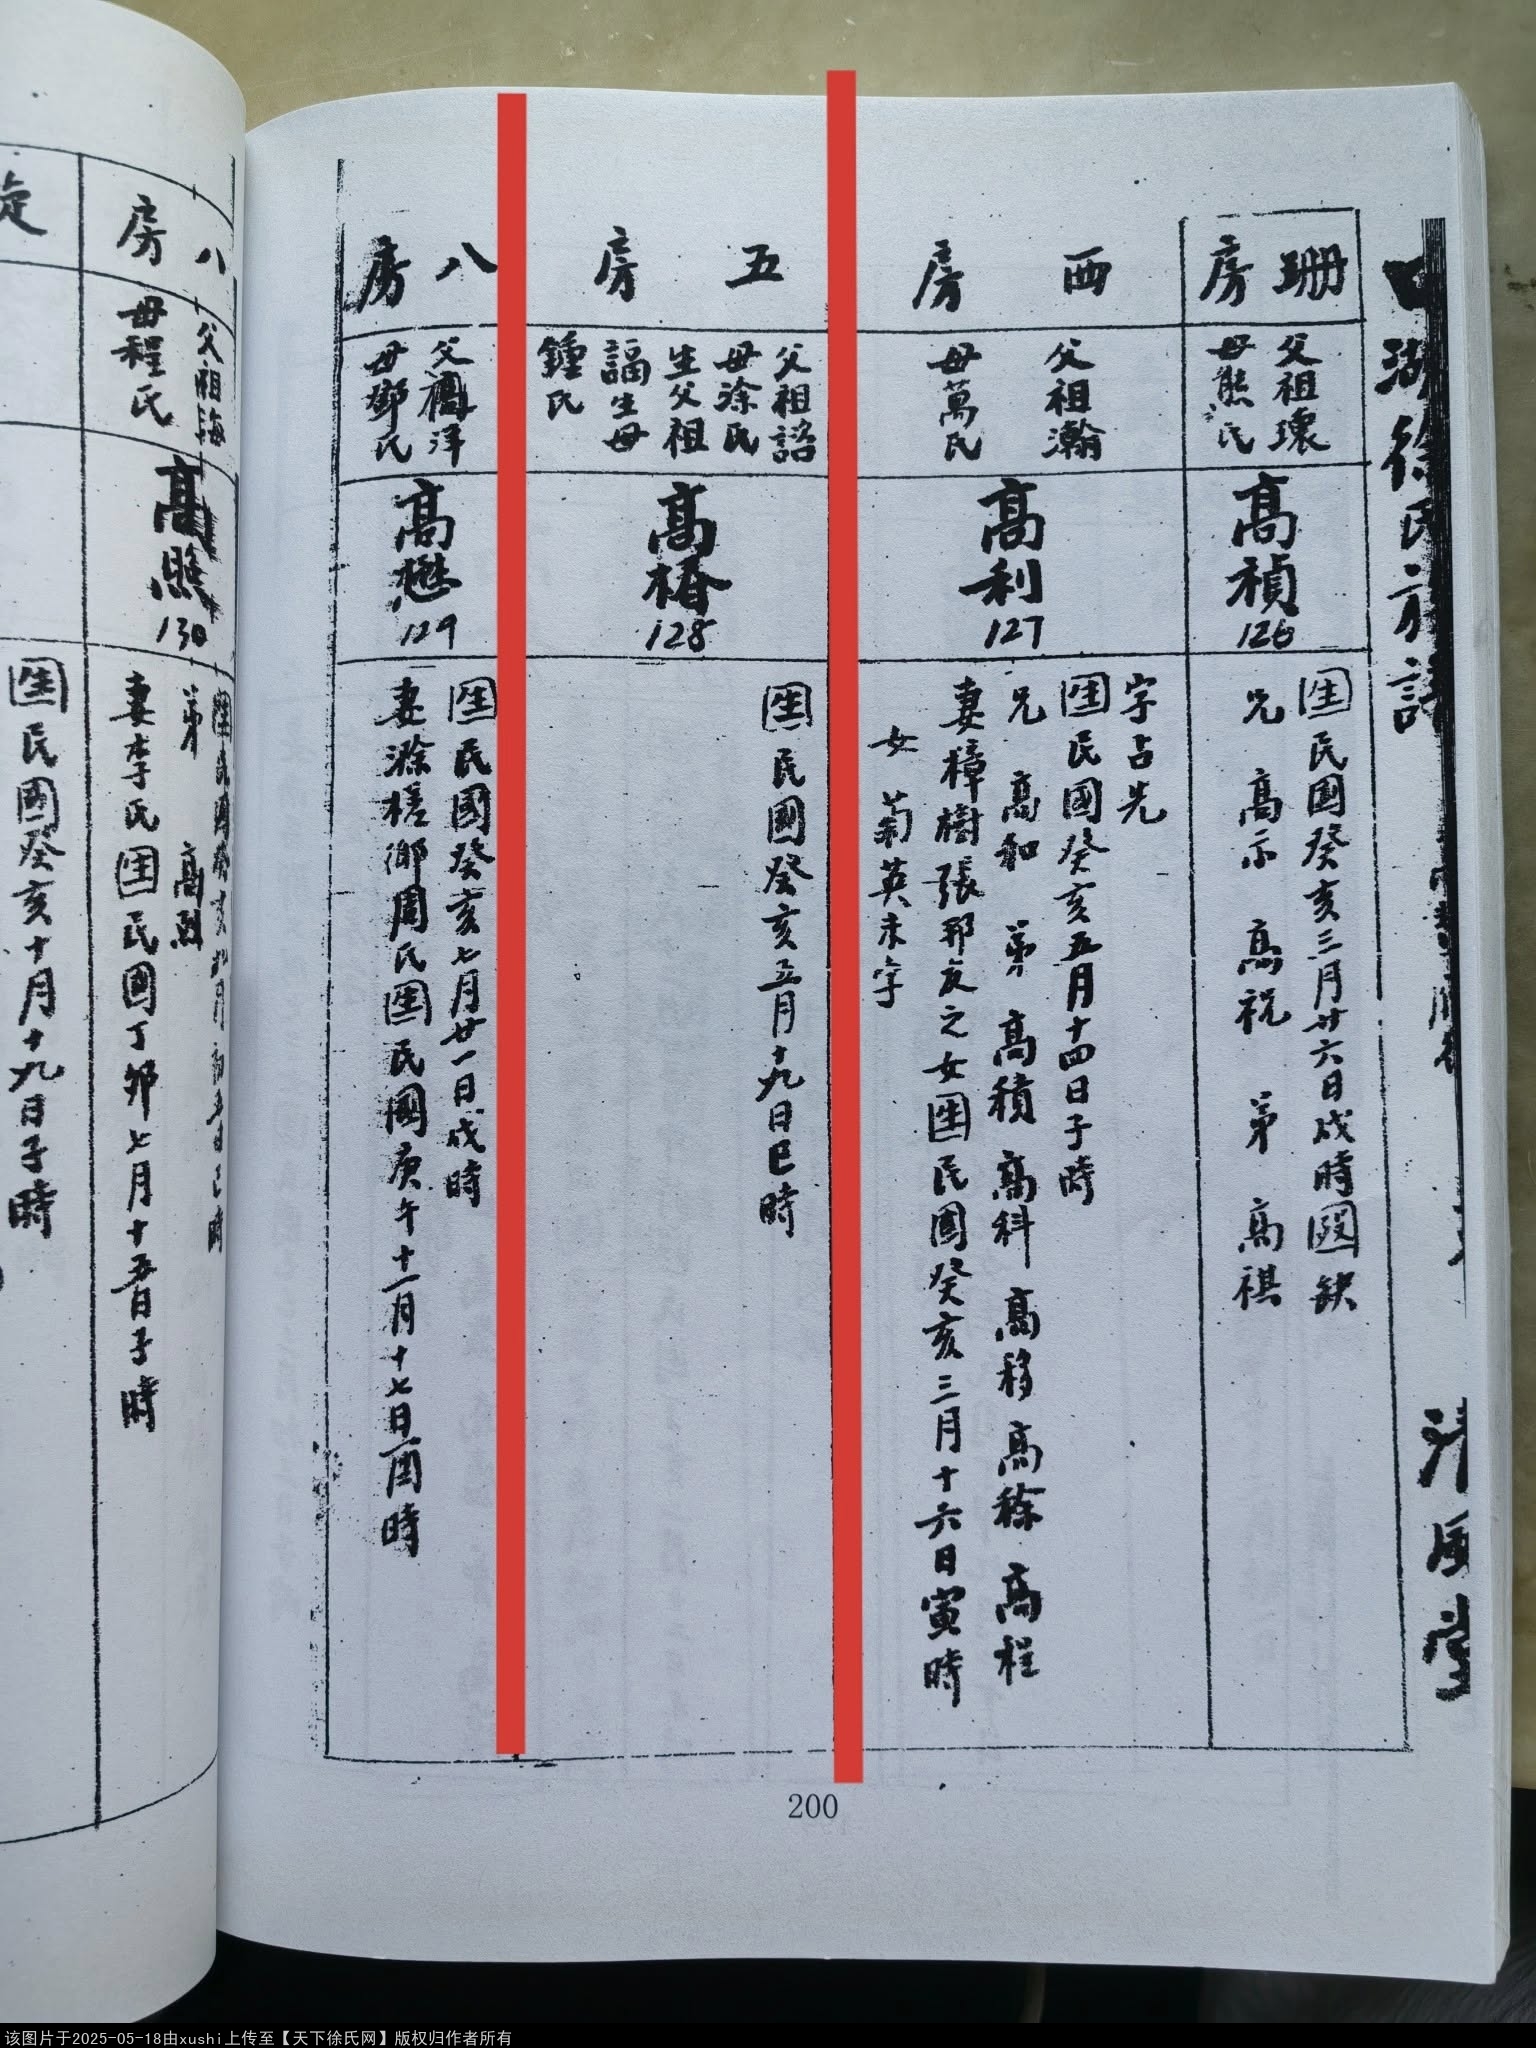 湖徐氏
清風堂
珊房
父祖瓌
母熊氏
高禎
126
生民國癸亥三月廿六日戌時歿缺
兄 高示 高祝 弟 高祺
西房
父祖瀚
母萬氏
高利
127
字占先
生民國癸亥五月十四日子時
兄 高和 弟 高積 高科 高移 高稌 高程
妻樟樹張邦友之女生民國癸亥三月十六日寅時
女 菊英未字
五房
父祖詔
母涂氏
生父祖
謌生母
鍾氏
高椿
128
生民國癸亥五月十九日巳時
八房
父祖洋
母鄧氏
高懋
129
生民國癸亥七月廿一日戌時
妻滁槎鄉周氏生民國庚午十一月十七日酉時
200
八房
父祖海
母程氏
高照
130
弟 高烈
妻李氏生民國丁卯七月十五日子時
生民國癸亥十月十九日子時
该图片于2025-05-18由xushi上传至【天下徐氏网】版权归作者所有